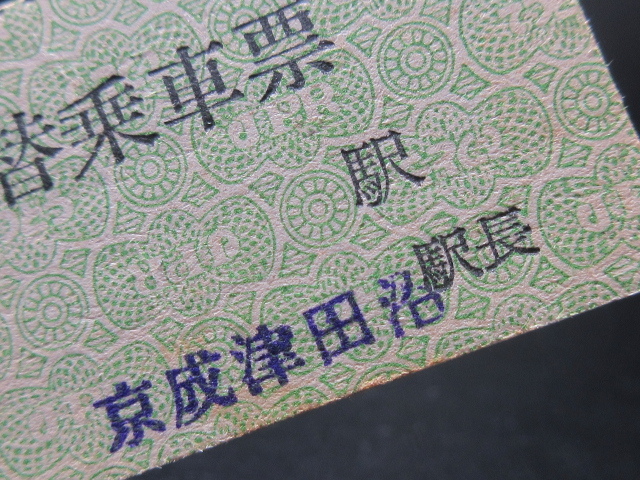 替乗車票
駅
駅長
京成津田沼